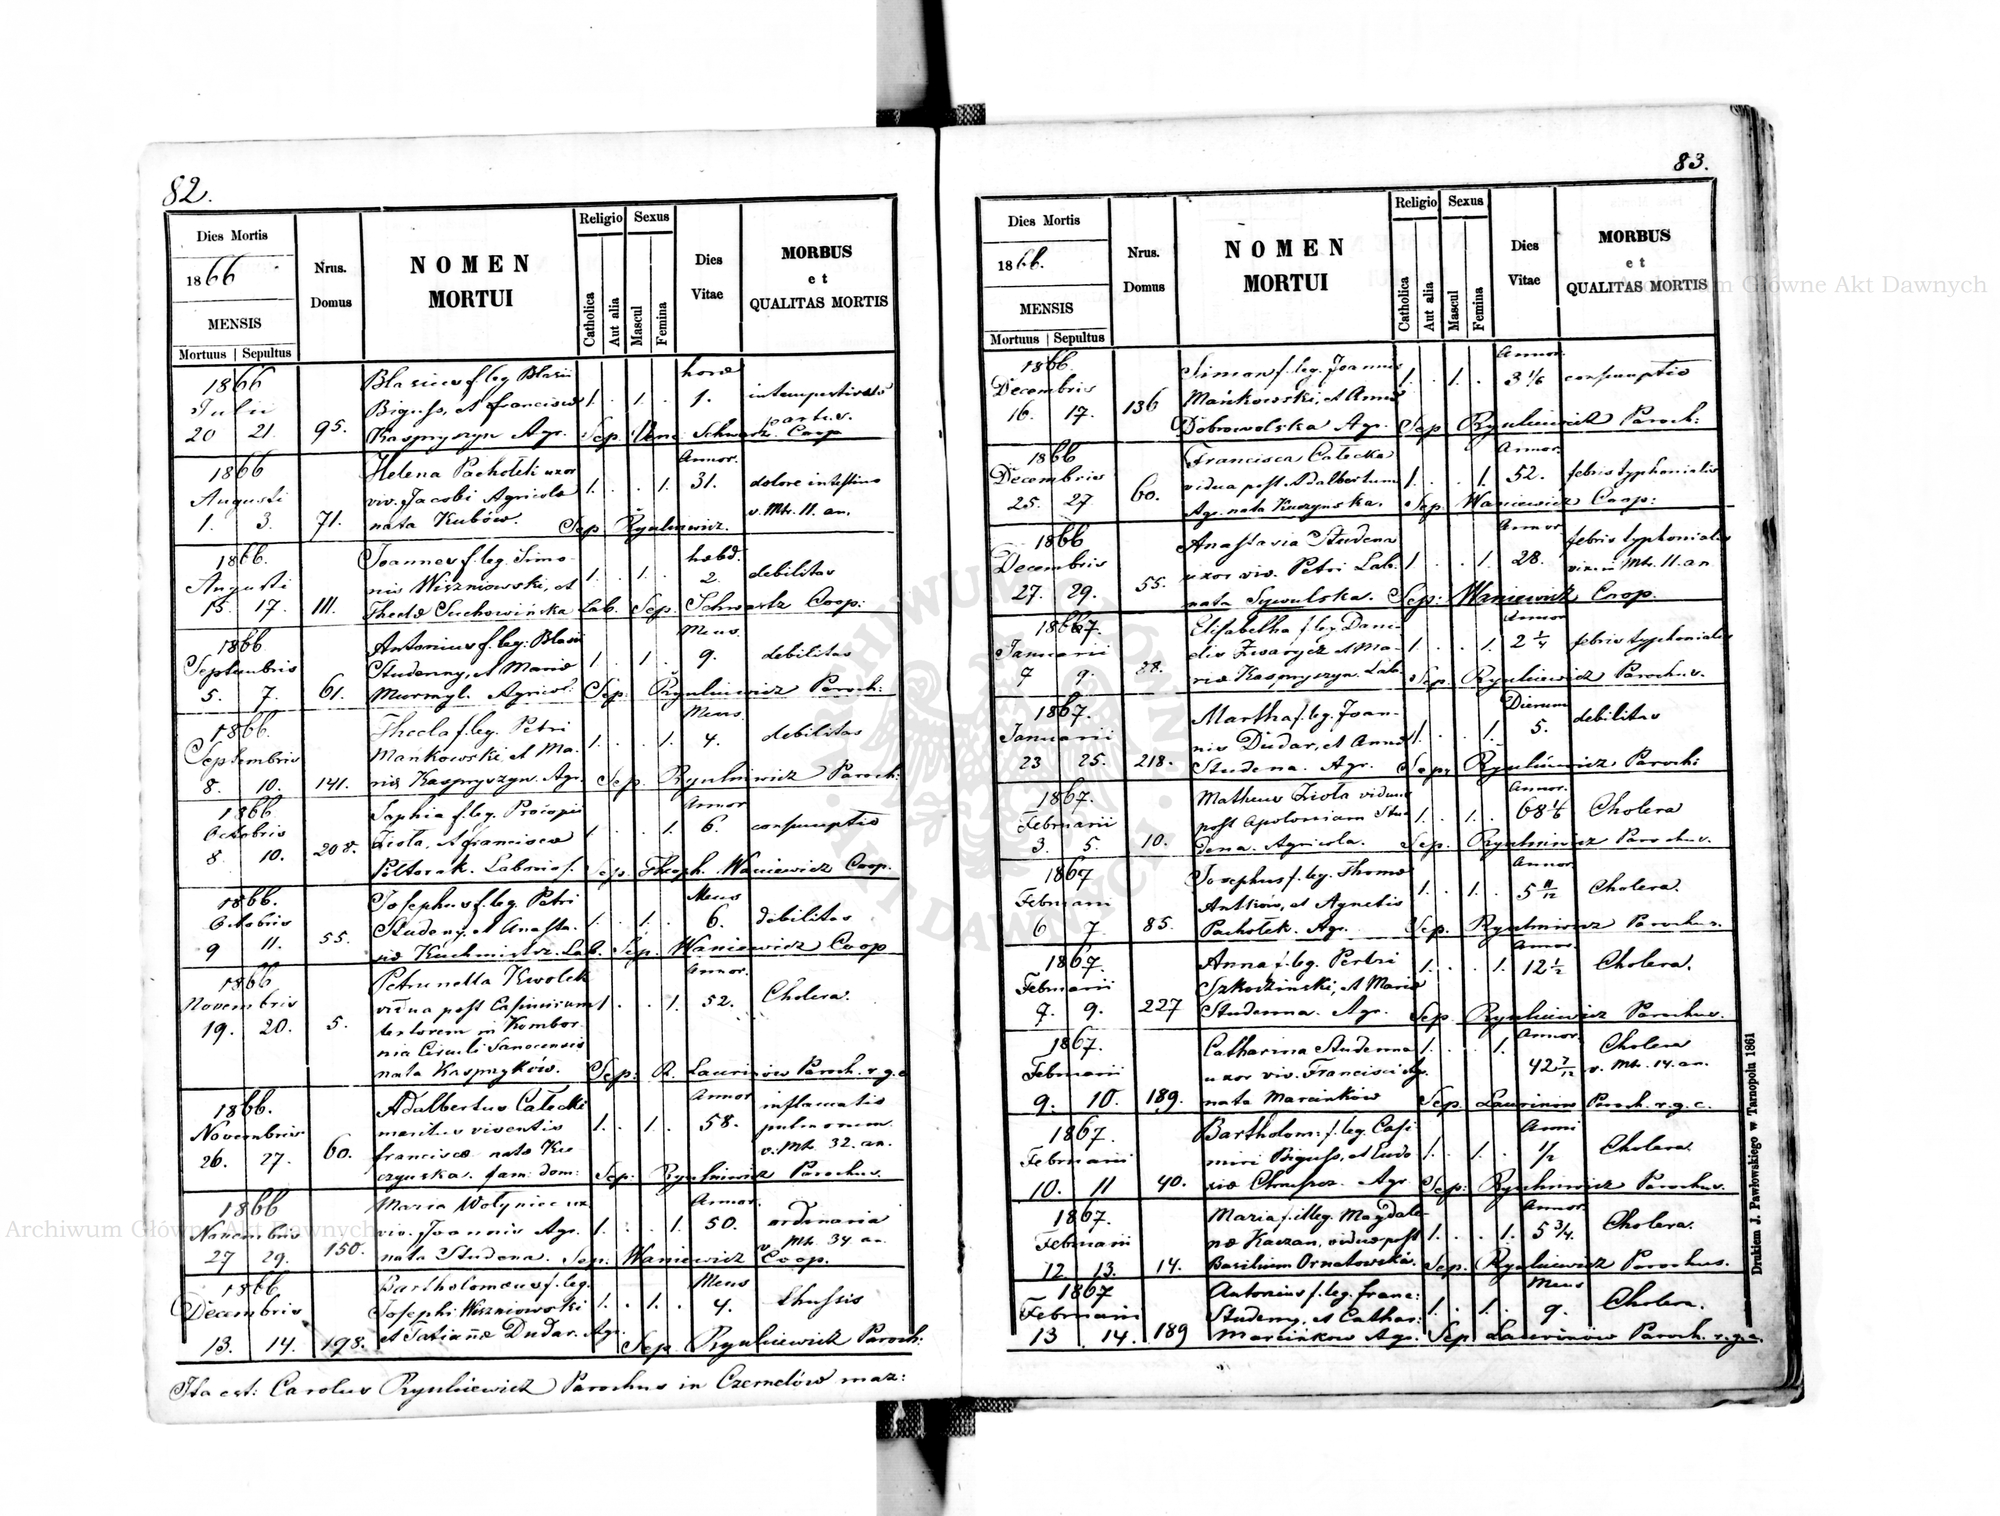 82.
Dies Mortis
1866
MENSIS
Mortuus Sepultus
Nrus. Domus
NOMEN MORTUI
Religio
Catholica
Aut alia
Sexus
Mascul
Femina
Dies Vitae
MORBUS
et
QUALITAS MORTIS
1866 Blasius f. leg. Blasii horae
Julii Biguss, et Franciscae 1. . 1. . 1. intempestivus partus.
20 21. 95. Kaspryszyn Agr. Sep. Vene Schwartz Coop
1866 Helena Pachołek uxor Annor.
Augusti viv. Jacobi Agricolae 1. . . 1. 31. dolore intestino
1. 3. 71. nata Kubów. Sep. Rynkiewicz. v. Mtr. 11. an.
1866. Joannes f. leg. Simo- hebd.
Augusti nis Wiszniowski, et 1. . 1. . 2. debilitas
15 17. 111. Theclae Suchowińska Lab. Sep. Schwartz Coop:
1866. Antonius f. leg. Blasii Mens.
Septembris Studenny, et Mariae 1. . 1. . 9. debilitas
5. 7. 61. Murmyl. Agricol. Sep. Rynkiewicz Paroch:
1866. Thecla f. leg. Petri Mens.
Septembris Mańkowski, et Ma- 1. . . 1. 4. debilitas
8. 10. 141. riae Kaspryszyn. Agr. Sep. Rynkiewicz Paroch:
1866 Sophia f. leg. Procopii Annor
Octobris Zioła, et Franciscae 1. . . 1. 6. consumptio
8. 10. 208. Półtorak. Laborios. Sep. Theoph. Waniewicz Coop.
1866. Josephus f. leg. Petri Mens
Octobris Studeny, et Anasta- 1. . 1. . 6. debilitas
9 11. 55. siae Kuchmistrz. Lab. Sep. Waniewicz Coop
1866 Petrunella Kwolek Annor.
Novembris vidua post Casimirum 1. . . 1. 52. Cholera.
19. 20. 5. textorem in Kombor-
nia Circuli Sanocensis
nata Kasprzyków. Sep: R. Laurinów Paroch. r. g. c
1866. Adalbertus Całecki Annor inflamatio
Novembris maritus viventis 1. . 1. . 58. pulmonum.
26. 27. 60. Franciscae natae Ku- v. Mtr. 32. an.
czynska. fam: dom: Sep: Rynkiewicz Parochus.
1866 Maria Wołyniec ux. Annor.
Novembris viv. Joannis Agr. 1. . . 1. 50. ordinaria
27 29. 150. nata Studena. Sep: Waniewicz Coop. v. Mtr. 34 an.
1866 Bartholomaeus f. leg. Mens
Decembris Josephi Wiszniowski 1. . 1. . 4. thussis
13. 14. 198. et Tatiannae Dudar. Agr. Sep Rynkiewicz Paroch:
Ita est: Carolus Rynkiewicz Parochus in Czernelów maz:
83.
Dies Mortis
1866.
MENSIS
Mortuus Sepultus
Nrus. Domus
NOMEN MORTUI
Religio
Catholica
Aut alia
Sexus
Mascul
Femina
Dies Vitae
MORBUS
et
QUALITAS MORTIS
1866. Simon f. leg. Joannis Annor.
Decembris Mańkowski, et Annae 1. . 1. . 3 1/6 consumptio
16. 17. 136 Dobrowolska Agr. Sep Rynkiewicz Paroch:
1866 Francisca Całecka Annor.
Decembris vidua post Adalbertum 1. . . 1. 52. febris typhonialis
25. 27 60. Agr. nata Kuczynska. Sep. Waniewicz Coop:
1866 Anastasia Studena Annor
Decembris uxor viv. Petri Lab. 1 . . 1. 28. febris typhonialis
27. 29. 55. nata Sywulska. Sep: Waniewicz Coop. vixit Mtr. 11. an
1867. Elisabetha f. leg. Dani- Annor
Januarii elis Zwarycz et Ma- 1. . . 1. 2 1/4 febris typhonialis
7 9. 28. riae Kaspryszyn. Lab. Sep. Rynkiewicz Parochus.
1867. Martha f. leg. Joan- Dierum
Januarii nis Dudar, et Annae 1. . . 1. 5. debilitas
23 25. 218. Studena. Agr. Sep. Rynkiewicz Paroch:
1867. Matheus Zioła viduus Annor.
Februarii post Apoloniam Stu- 1. . 1. . 68 4/6 Cholera
3. 5. 10. dena. Agricola. Sep. Rynkiewicz Parochus.
1867 Josephus f. leg. Thomae Annor.
Februarii Antków, et Agnetis 1. . 1. . 5 11/12 Cholera.
6 7. 85. Pachołek. Agr. Sep. Rynkiewicz Parochus.
1867. Anna f. leg. Pertri Annor.
Februarii Szkodzinski, et Mariae 1. . . 1. 12 1/2 Cholera.
7. 9. 227 Studenna. Agr. Sep. Rynkiewicz Parochus.
1867. Catharina Studenna 1. . . 1. Annor. Cholera
Februarii uxor viv. Francisci Agr. 42 7/12 v. Mtr. 14. an.
9. 10. 189. nata Marcinków Sep. Laurinów Paroch. r. g. c.
1867. Bartholom: f. leg. Casi- Anni
Februarii miri Biguss, et Eudo- 1. . 1. . 1/2 Cholera.
10. 11 40. xiae Agr Sep: Rynkiewicz Parochus.
1867. Maria f. illeg. Magdale- Annor.
Februarii nae Kaczan, viduae post 1. . . 1. 5 3/4. Cholera.
12. 13. 14. Basilium Ornatowska. Sep. Rynkiewicz Parochus.
1867 Antonius f. leg. Franc: Mens
Februarii Studeny, et Cathar: 1. . 1. . 9. Cholera.
13 14. 189 Marcinkow Agr. Sep Laurinów Paroch. r. g. c.
Drukiem J. Pawłowskiego w Tarnopolu 1861
Archiwum Główne Akt Dawnych
Archiwum Główne Akt Dawnych
ARCHIWUM GŁÓWNE AKT DAWNYCH